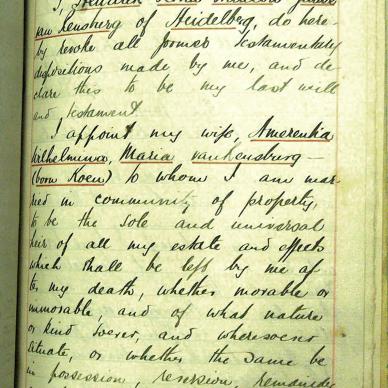 I, Frederick
van Rensberg of Heidelberg, do here-
by revoke all former testamentary
dispositions made by me, and de-
clare this to be my last will
and testament.
I appoint my wife, Amerentia
Wilhelmina, Maria van Rensburg —
(born Koen) to whom I am mar-
ried in community of property,
to be the sole and universal
heir of all my estate and effects
which shall be left by me af-
ter my death, whether movable or
immovable, and of what nature
or kind soever, and wheresoever
situate, or whether the same be
in possession, reversion, remainder